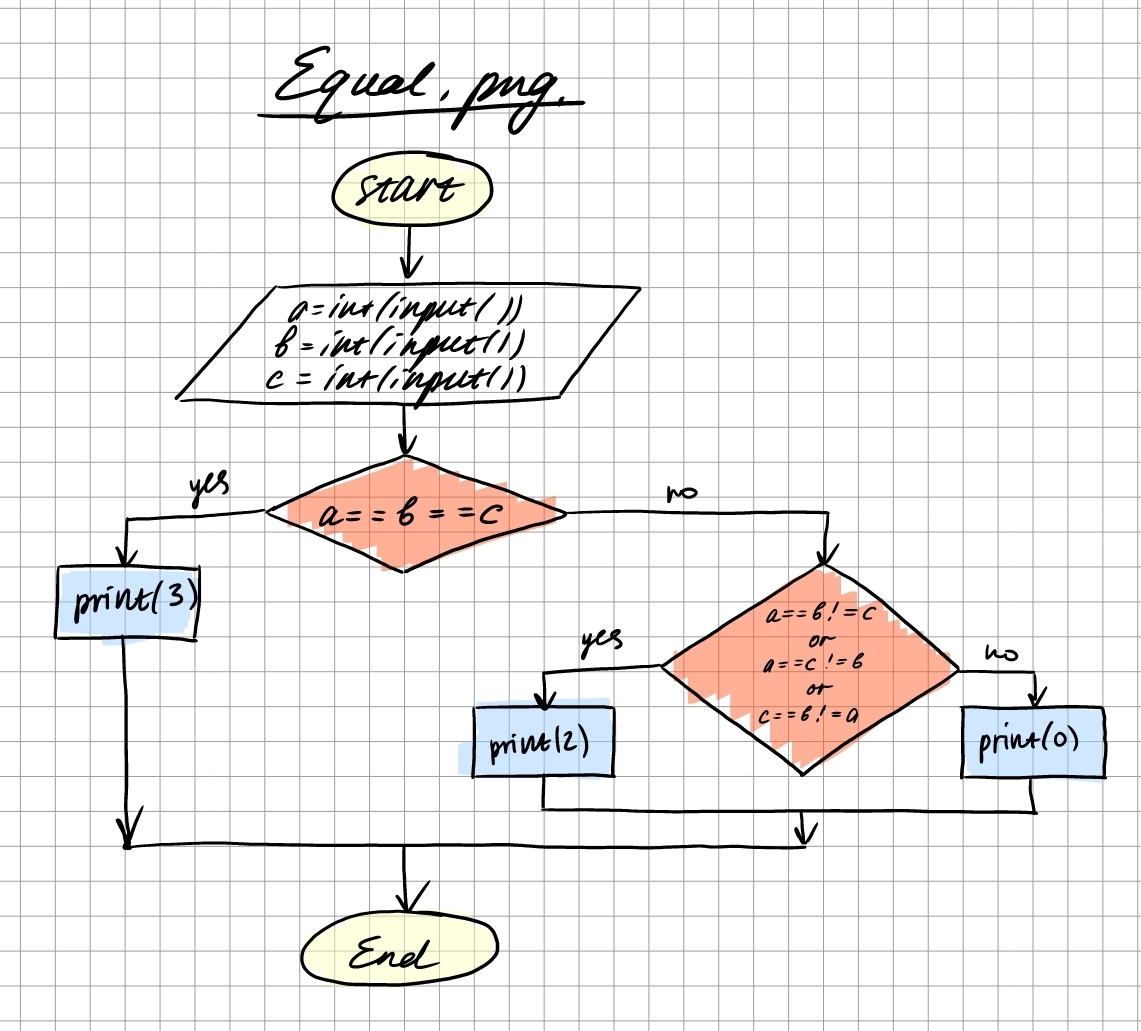 Equal.png.
start
a=int(input())
b=int(input())
c = int(input())
yes
no
a==b==c
print(3)
yes
no
a==b!=c
or
a==c!=b
or
c==b!=a
print(2)
print(0)
End